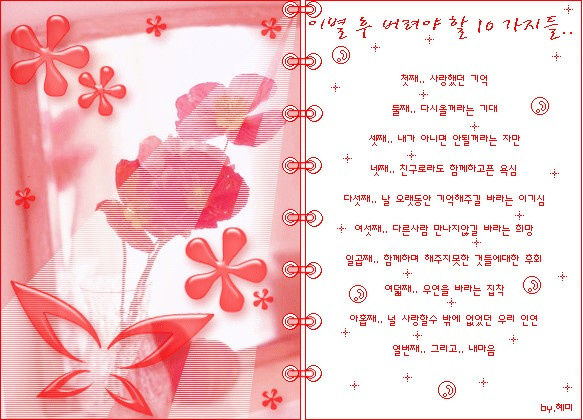 이별 후 버려야 할 10 가지들..
첫째.. 사랑했던 기억
둘째.. 다시올꺼라는 기대
셋째.. 내가 아니면 안될꺼라는 자만
넷째.. 친구로라도 함께하고픈 욕심
다섯째.. 날 오랫동안 기억해주길 바라는 이기심
여섯째.. 다른사람 만나지않길 바라는 희망
일곱째.. 함께하며 해주지못한 것들에대한 후회
여덟째.. 우연을 바라는 집착
아홉째.. 널 사랑할수 밖에 없었던 우리 인연
열번째.. 그리고.. 내마음
by.혜미